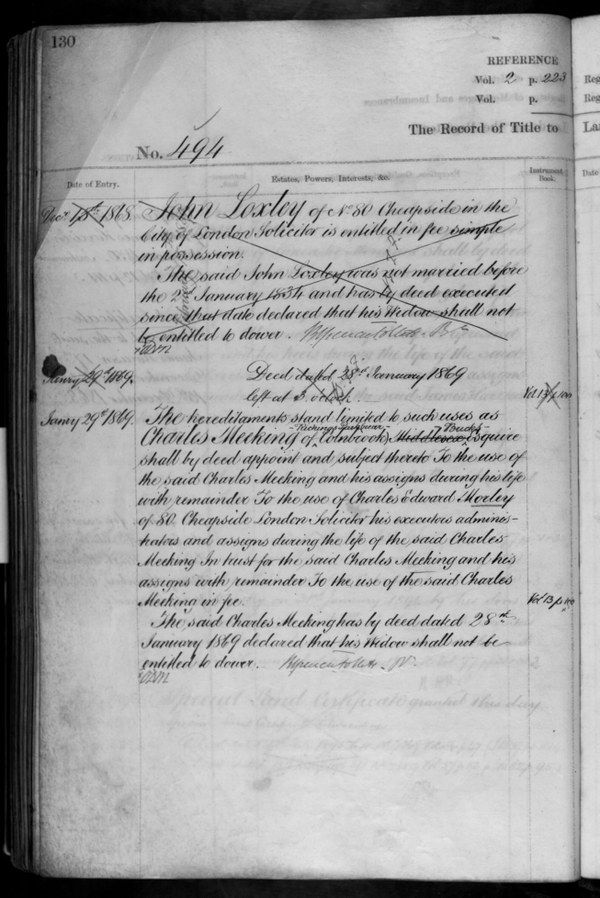 130
REFERENCE
Vol. 2 p. 223
Vol. p.
The Record of Title to La
No. 494
Date of Entry.
Estates, Powers, Interests, &c.
Instrument Book.
Reg
Reg
Date
Decr 1868 John Loxley of No 80 Cheapside in the
City of London Solicitor is entitled in fee simple
in possession.
The said John Loxley was not married before
the 2nd January 1834 and has by deed executed
since that date declared that his Widow shall not
be entitled to dower.
Janry 29th 1869.
Deed dated 28th January 1869
left at 3 o'clock
Vol 13 p
Janry 29th 1869. The hereditaments stand limited to such uses as
Charles Meeking of Richings Park near Colnbrook Middlesex Bucks Esquire
shall by deed appoint and subject thereto To the use of
the said Charles Meeking and his assigns during his life
with remainder To the use of Charles Edward Morley
of 80 Cheapside London Solicitor his executors adminis-
trators and assigns during the life of the said Charles
Meeking In trust for the said Charles Meeking and his
assigns with remainder To the use of the said Charles
Meeking in fee.
Vol 13 p
The said Charles Meeking has by deed dated 28th
January 1869 declared that his Widow shall not be
entitled to dower.